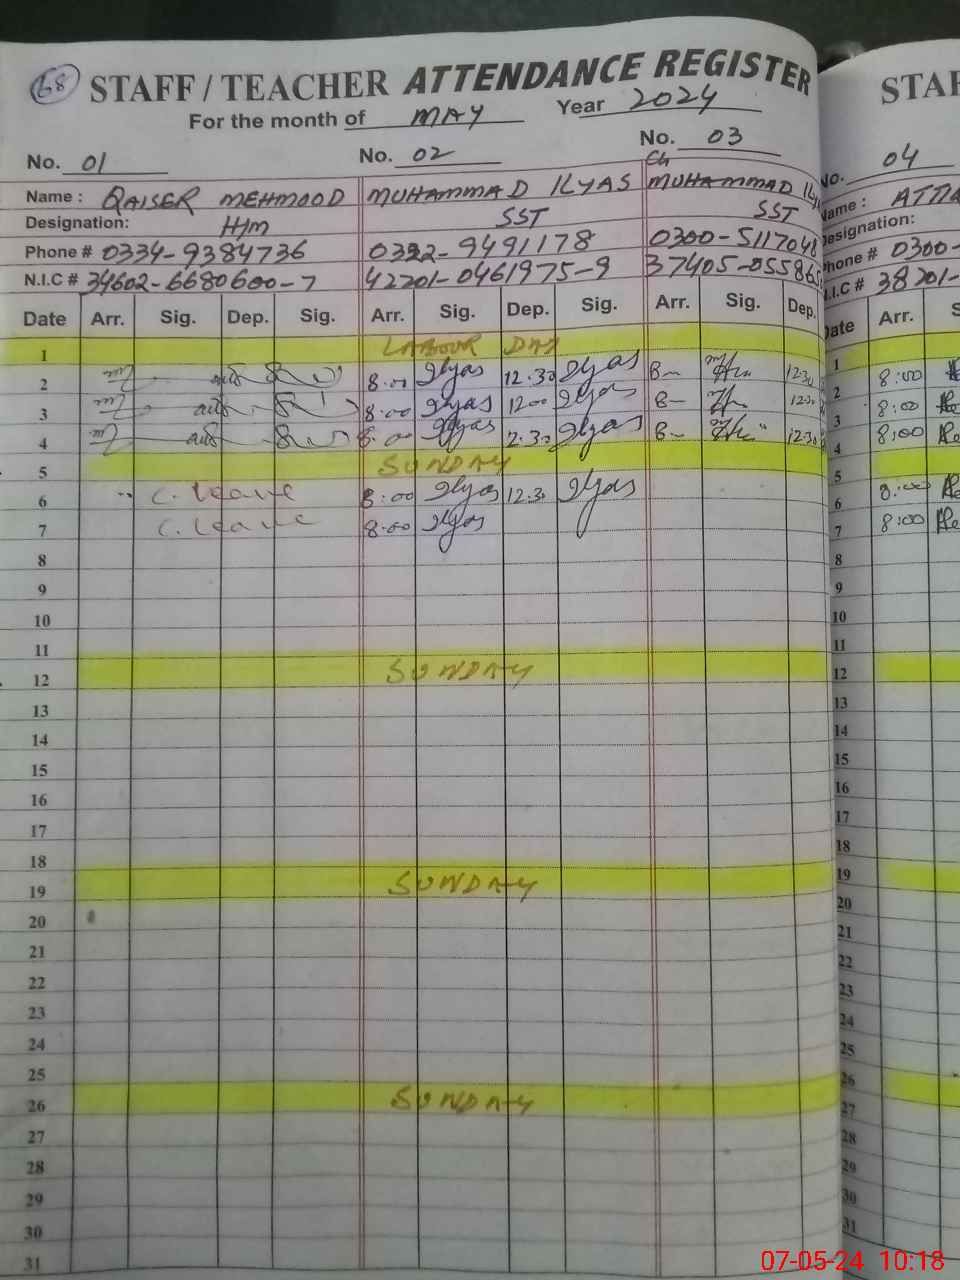 68 STAFF / TEACHER ATTENDANCE REGISTER
For the month of MAY Year 2024
No. 01 No. 02 No. 03
Ch
Name : QAISER MEHMOOD MUHAMMAD ILYAS MUHAMMAD
Designation: H/m SST SST
Phone # 0334-9384736 0322-9491178 0300-5117048
N.I.C # 34602-6680600-7 42201-0461975-9 37405-055865
Date Arr. Sig. Dep. Sig. Arr. Sig. Dep. Sig. Arr. Sig. Dep.
1 LABOUR DAY
2 8:00 Ilyas 12:30 Ilyas 8- 12:30
3 8:00 Ilyas 1200 Ilyas 8- 1230
4 8:00 Ilyas 2:30 Ilyas 8- 12:30
5 SUNDAY
6 C. leave 8:00 Ilyas 12:30 Ilyas
7 C. leave 8:00 Ilyas
8
9
10
11
12 SUNDAY
13
14
15
16
17
18
19 SUNDAY
20
21
22
23
24
25
26 SUNDAY
27
28
29
30
31
STAF
No. 04
Name :
Designation:
Phone # 0300-
N.I.C # 38201-
Date Arr. S
1
2 8:00
3 8:00
4 8:00
5
6 8:00
7 8:00
8
9
10
11
12
13
14
15
16
17
18
19
20
21
22
23
24
25
26
27
28
29
30
31
07-05-24 10:18